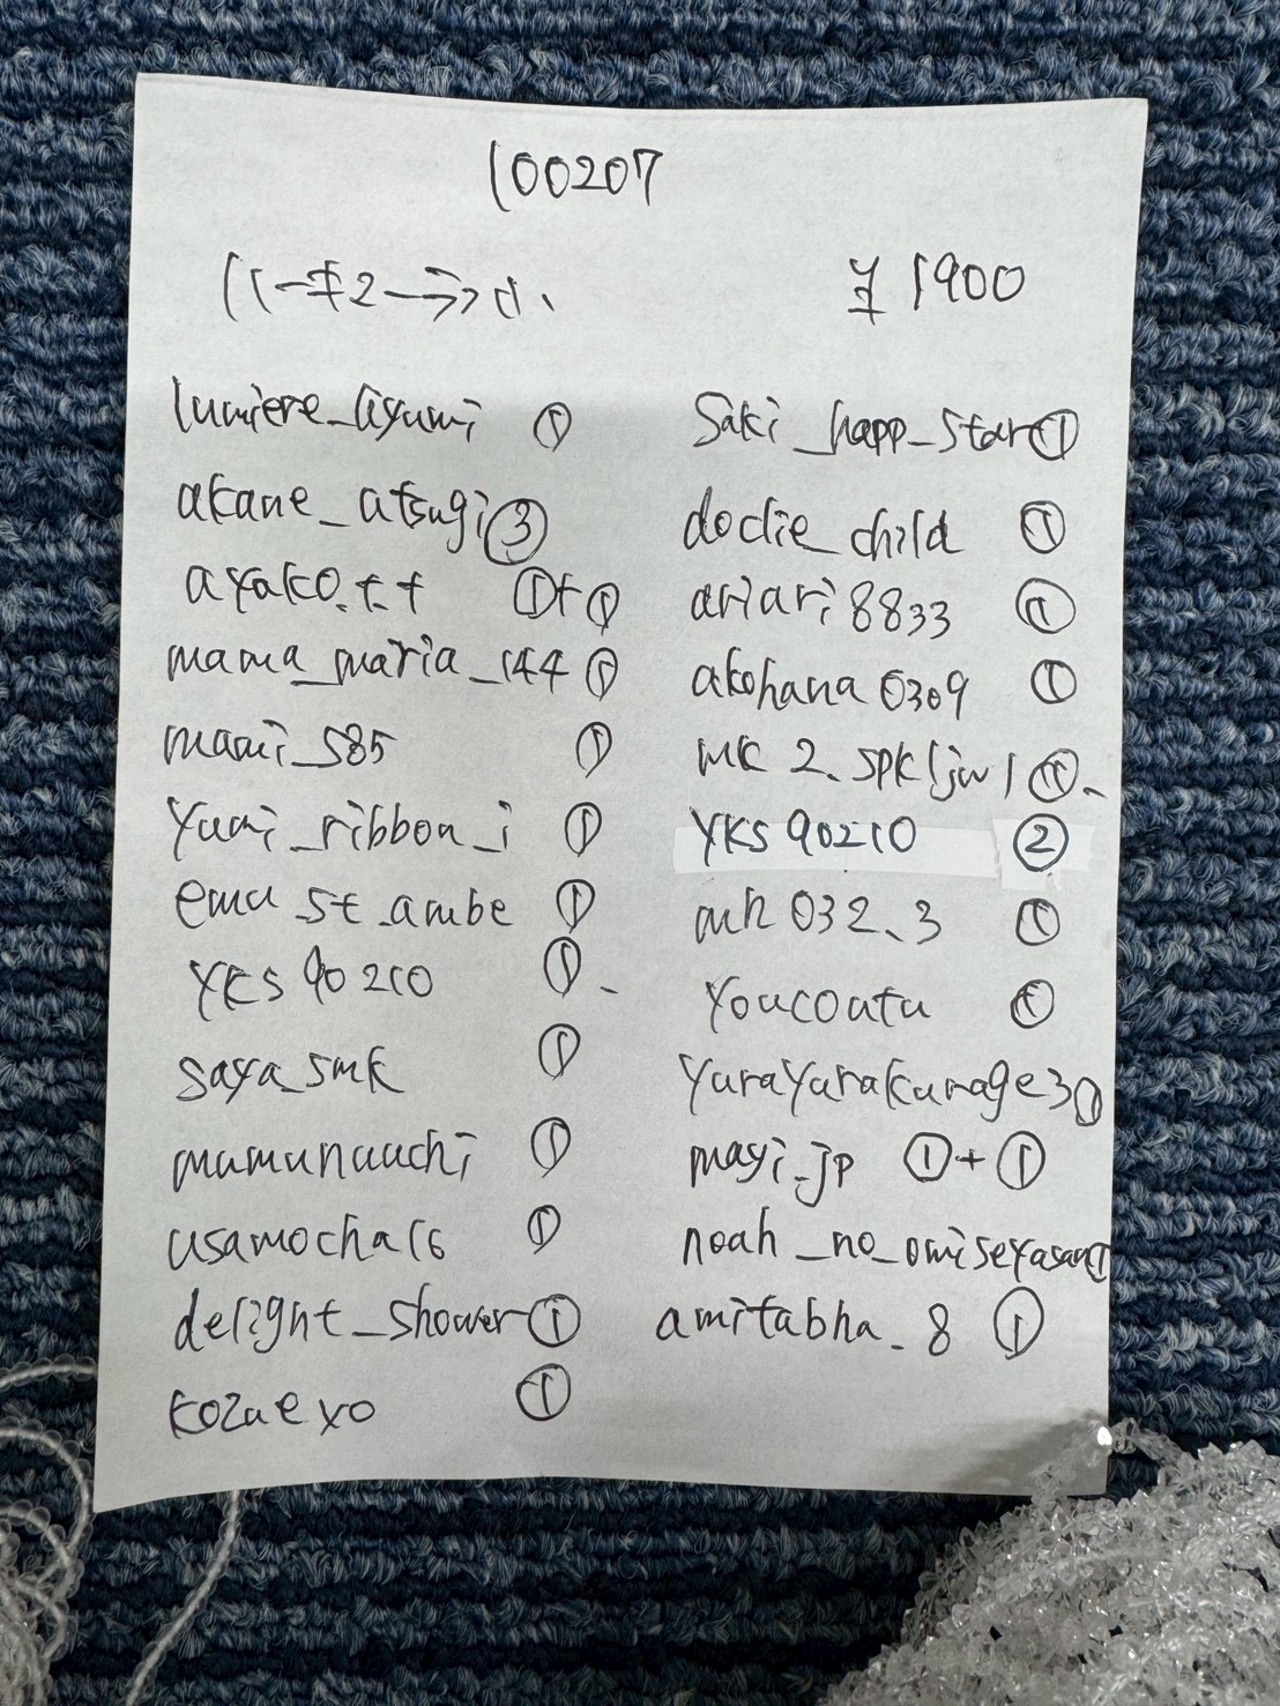 100207
ハーキマーさざれ
¥1900
lumiere_ayumi ①
akane_atsugi ③
ayako.t.t ①+①
mama_maria_144 ①
mami_585 ①
yumi_ribbon_i ①
emu_st_ambe ①
YKS90210 ①
saya_smk ①
mumunauchi ①
usamocha16 ①
delight_shower ①
kozaexo ①
Saki_happ_star ①
doclie_child ①
ariari8833 ①
akohana0309 ①
mk2.spkljw1 ①
YKS90210 ②
mh032.3 ①
youcoatu ①
yurayurakurage3 ①
mayi.jp ①+①
noah_no_omiseyasan ①
amitabha_8 ①